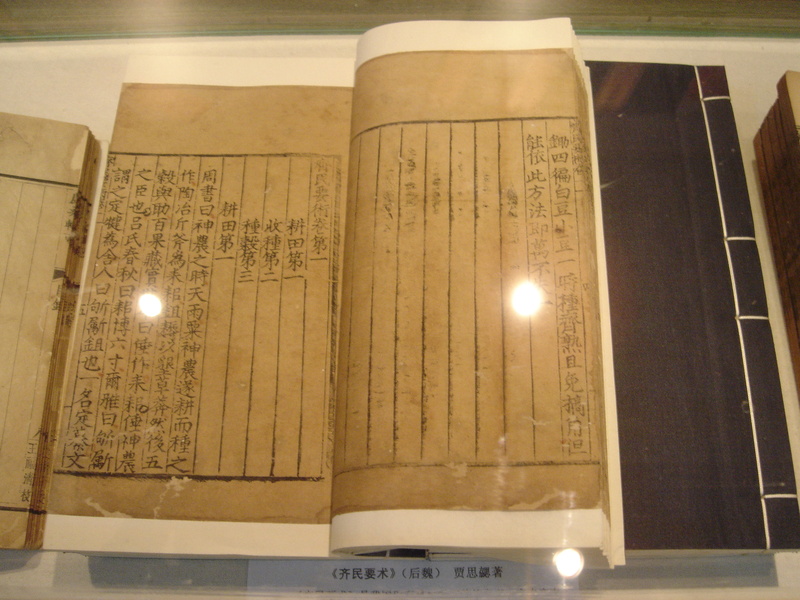 鋤四徧白豆小豆一時種齊熟且免摘角但
能依此方法即萬不
齊民要術卷第一
耕田第一
收種第二
種穀第三
耕田第一
周書曰神農之時天雨粟神農遂耕而種之
作陶冶斤斧為耒耜鉏耨以墾草莽然後五
穀與助百果藏實曰倕作耒耜倕神農
之臣也呂氏春秋曰耜博六寸爾雅曰斪斸
謂之定犍為舍人曰斪斸鉏也一名定纂文
《齐民要术》（后魏） 贾思勰著